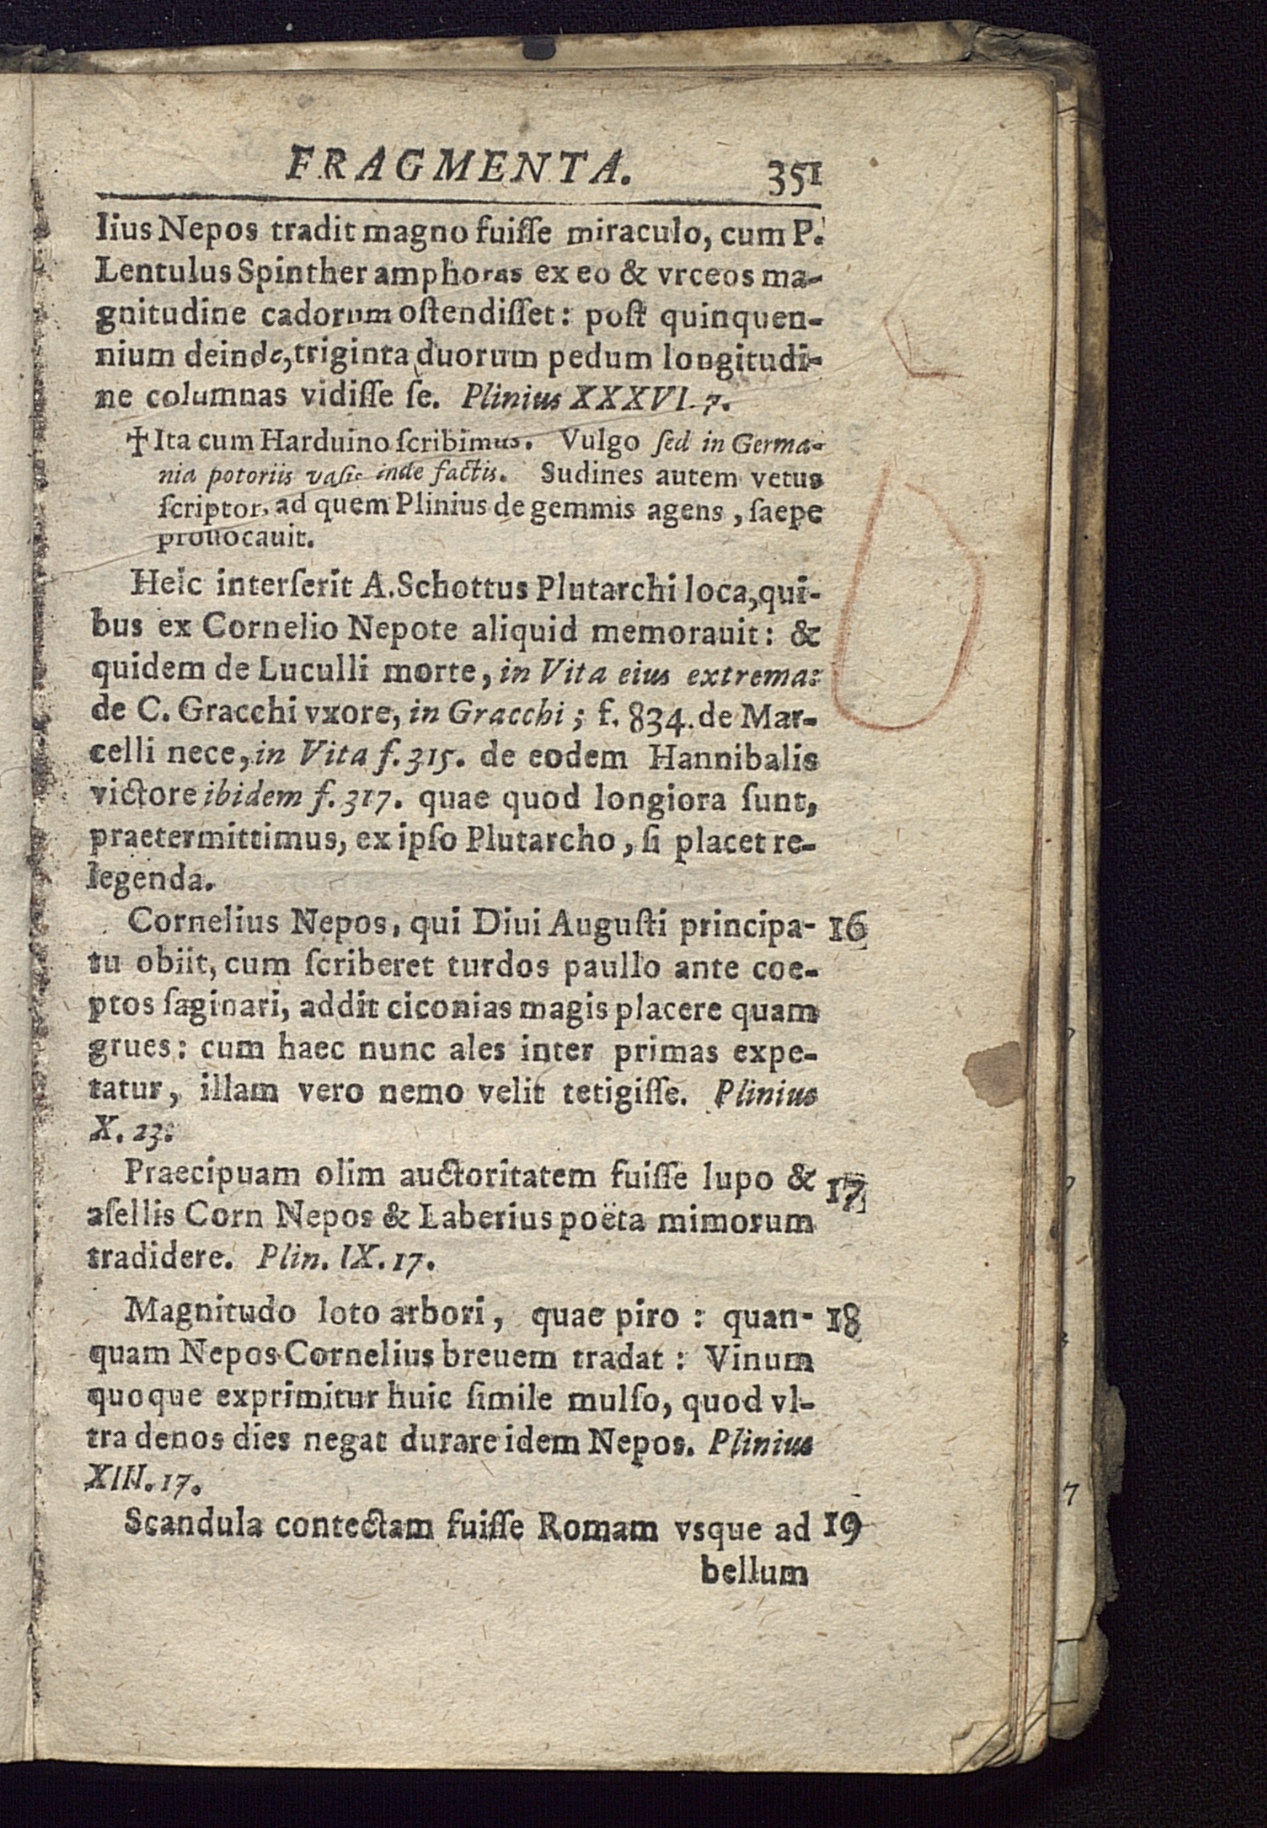 FRAGMENTA. 351
lius Nepos tradit magno fuiſſe miraculo, cum P.
Lentulus Spinther amphoras ex eo & vrceos ma-
gnitudine cadorum oſtendiſſet: poſt quinquen-
nium deinde, triginta duorum pedum longitudi-
ne columnas vidiſſe ſe. Plinius XXXVI. 7.
✝ Ita cum Harduino ſcribimus. Vulgo ſed in Germa-
nia potoriis vaſis inde factis. Sudines autem vetus
ſcriptor, ad quem Plinius de gemmis agens, ſaepe
prouocauit.
Heic interſerit A. Schottus Plutarchi loca, qui-
bus ex Cornelio Nepote aliquid memorauit: &
quidem de Luculli morte, in Vita eius extrema:
de C. Gracchi vxore, in Gracchi; f. 834. de Mar-
celli nece, in Vita f. 315. de eodem Hannibalis
victore ibidem f. 317. quae quod longiora ſunt,
praetermittimus, ex ipſo Plutarcho, ſi placet re-
legenda.
Cornelius Nepos, qui Diui Auguſti principa- 16
tu obiit, cum ſcriberet turdos paullo ante coe-
ptos ſaginari, addit ciconias magis placere quam
grues: cum haec nunc ales inter primas expe-
tatur, illam vero nemo velit tetigiſſe. Plinius
X. 23.
Praecipuam olim auctoritatem fuiſſe lupo & 17
aſellis Corn Nepos & Laberius poëta mimorum
tradidere. Plin. IX. 17.
Magnitudo loto arbori, quae piro: quan- 18
quam Nepos Cornelius breuem tradat: Vinum
quoque exprimitur huic ſimile mulſo, quod vl-
tra denos dies negat durare idem Nepos. Plinius
XIII. 17.
Scandula contectam fuiſſe Romam vsque ad 19
bellum